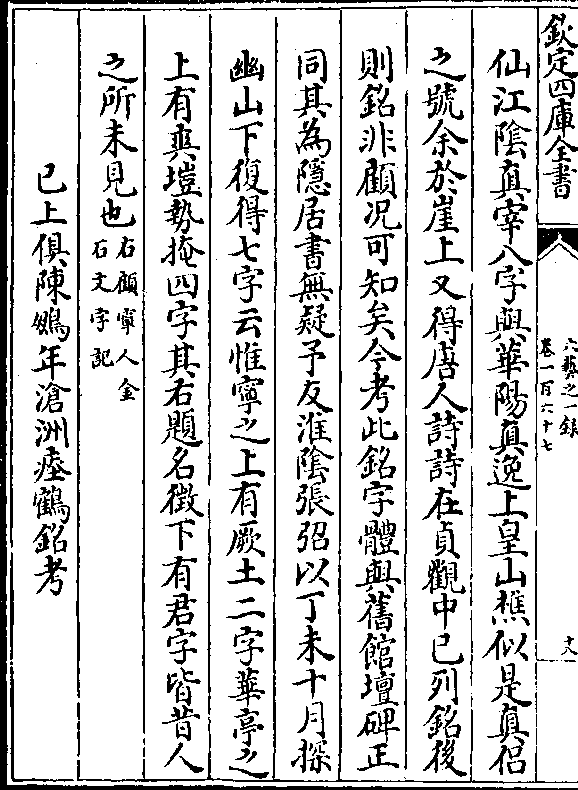 欽定四庫全書
六藝之一錄
卷一百六十七
十八
仙江陰真宰八字與華陽真逸上皇山樵似是真侶
之號余於崖上又得唐人詩詩在貞觀中已列銘後
則銘非顧况可知矣今考此銘字體與舊館壇碑正
同其為隱居書無疑予友淮陰張弨以丁未十月探
幽山下復得七字云惟寧之上有厥土二字華亭之
上有爽塏勢掩四字其右題名徵下有君字皆昔人
之所未見也右顧寧人金
石文字記
已上俱陳鵬年滄洲瘞鶴銘考